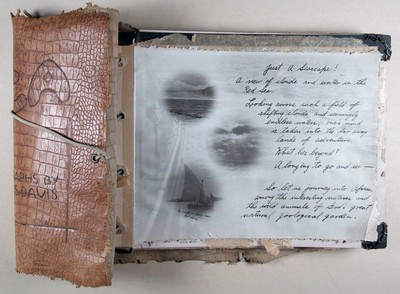 Just A Seascape!
A view of clouds and water in the
Red Sea.
Looking across such a field of
shifting clouds and seemingly
endless water, one's mind
is taken into the far away
lands of adventure.
What lies beyond?
A longing to go and see —
So let us journey into Africa
among the interesting natives and
the wild animals of God's great
natural zoological garden.
BY
DAVIS